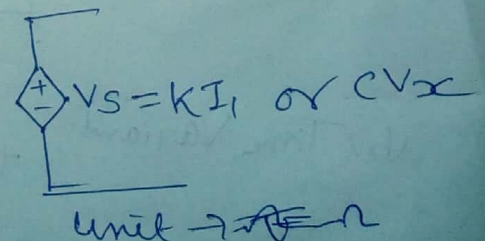 +
− VS = KI₁ or CVx
Unit → Ω